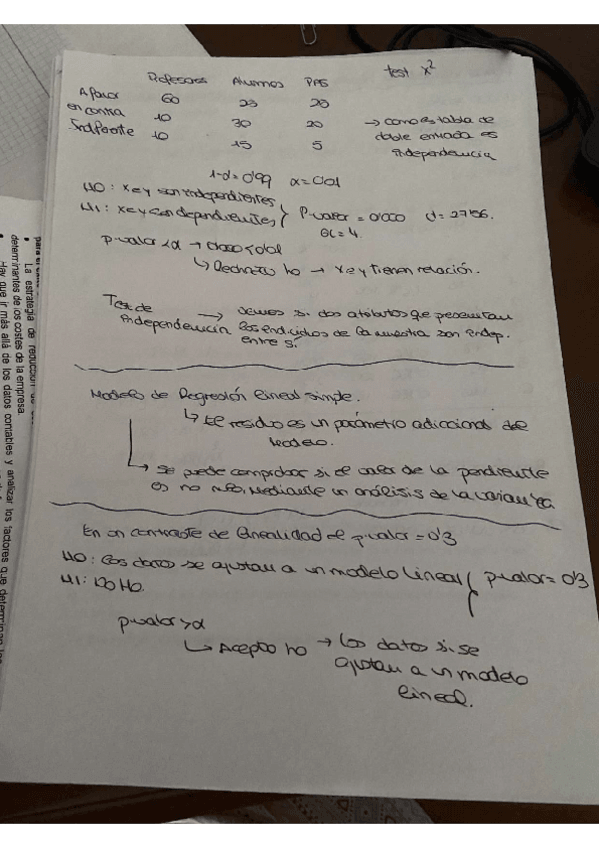 Profesores Alumnos PAS test x²
A favor 60 23 20
en contra 10 30 20 → como es tabla de
Indiferente 10 15 5 doble entrada es
independencia
1-α = 0'99 α = 0'01
H0: x e y son independientes
H1: x e y son dependientes P-valor = 0'000
GL = 4
p-valor < α →
↳ Rechazo ho → x e y tienen relación.
Test de → vemos si dos atributos que presentan
independencia los individuos de la muestra son indep.
entre sí
Modelo de Regresión lineal simple.
↳ El residuo es un parámetro adicional del
modelo.
↳ Se puede comprobar si el valor de la pendiente
es no nulo, mediante un análisis de la varianza
En un contraste de linealidad el p-valor = 0'3
H0: Los datos se ajustan a un modelo lineal p-valor = 0'3
H1: No H0.
p-valor > α
↳ Acepto ho → Los datos si se
ajustan a un modelo
lineal.
La estrategia de reducción de
determinantes de los costes de la empresa
Hay que ir más allá de los datos contables y analizar los factores que determinan los